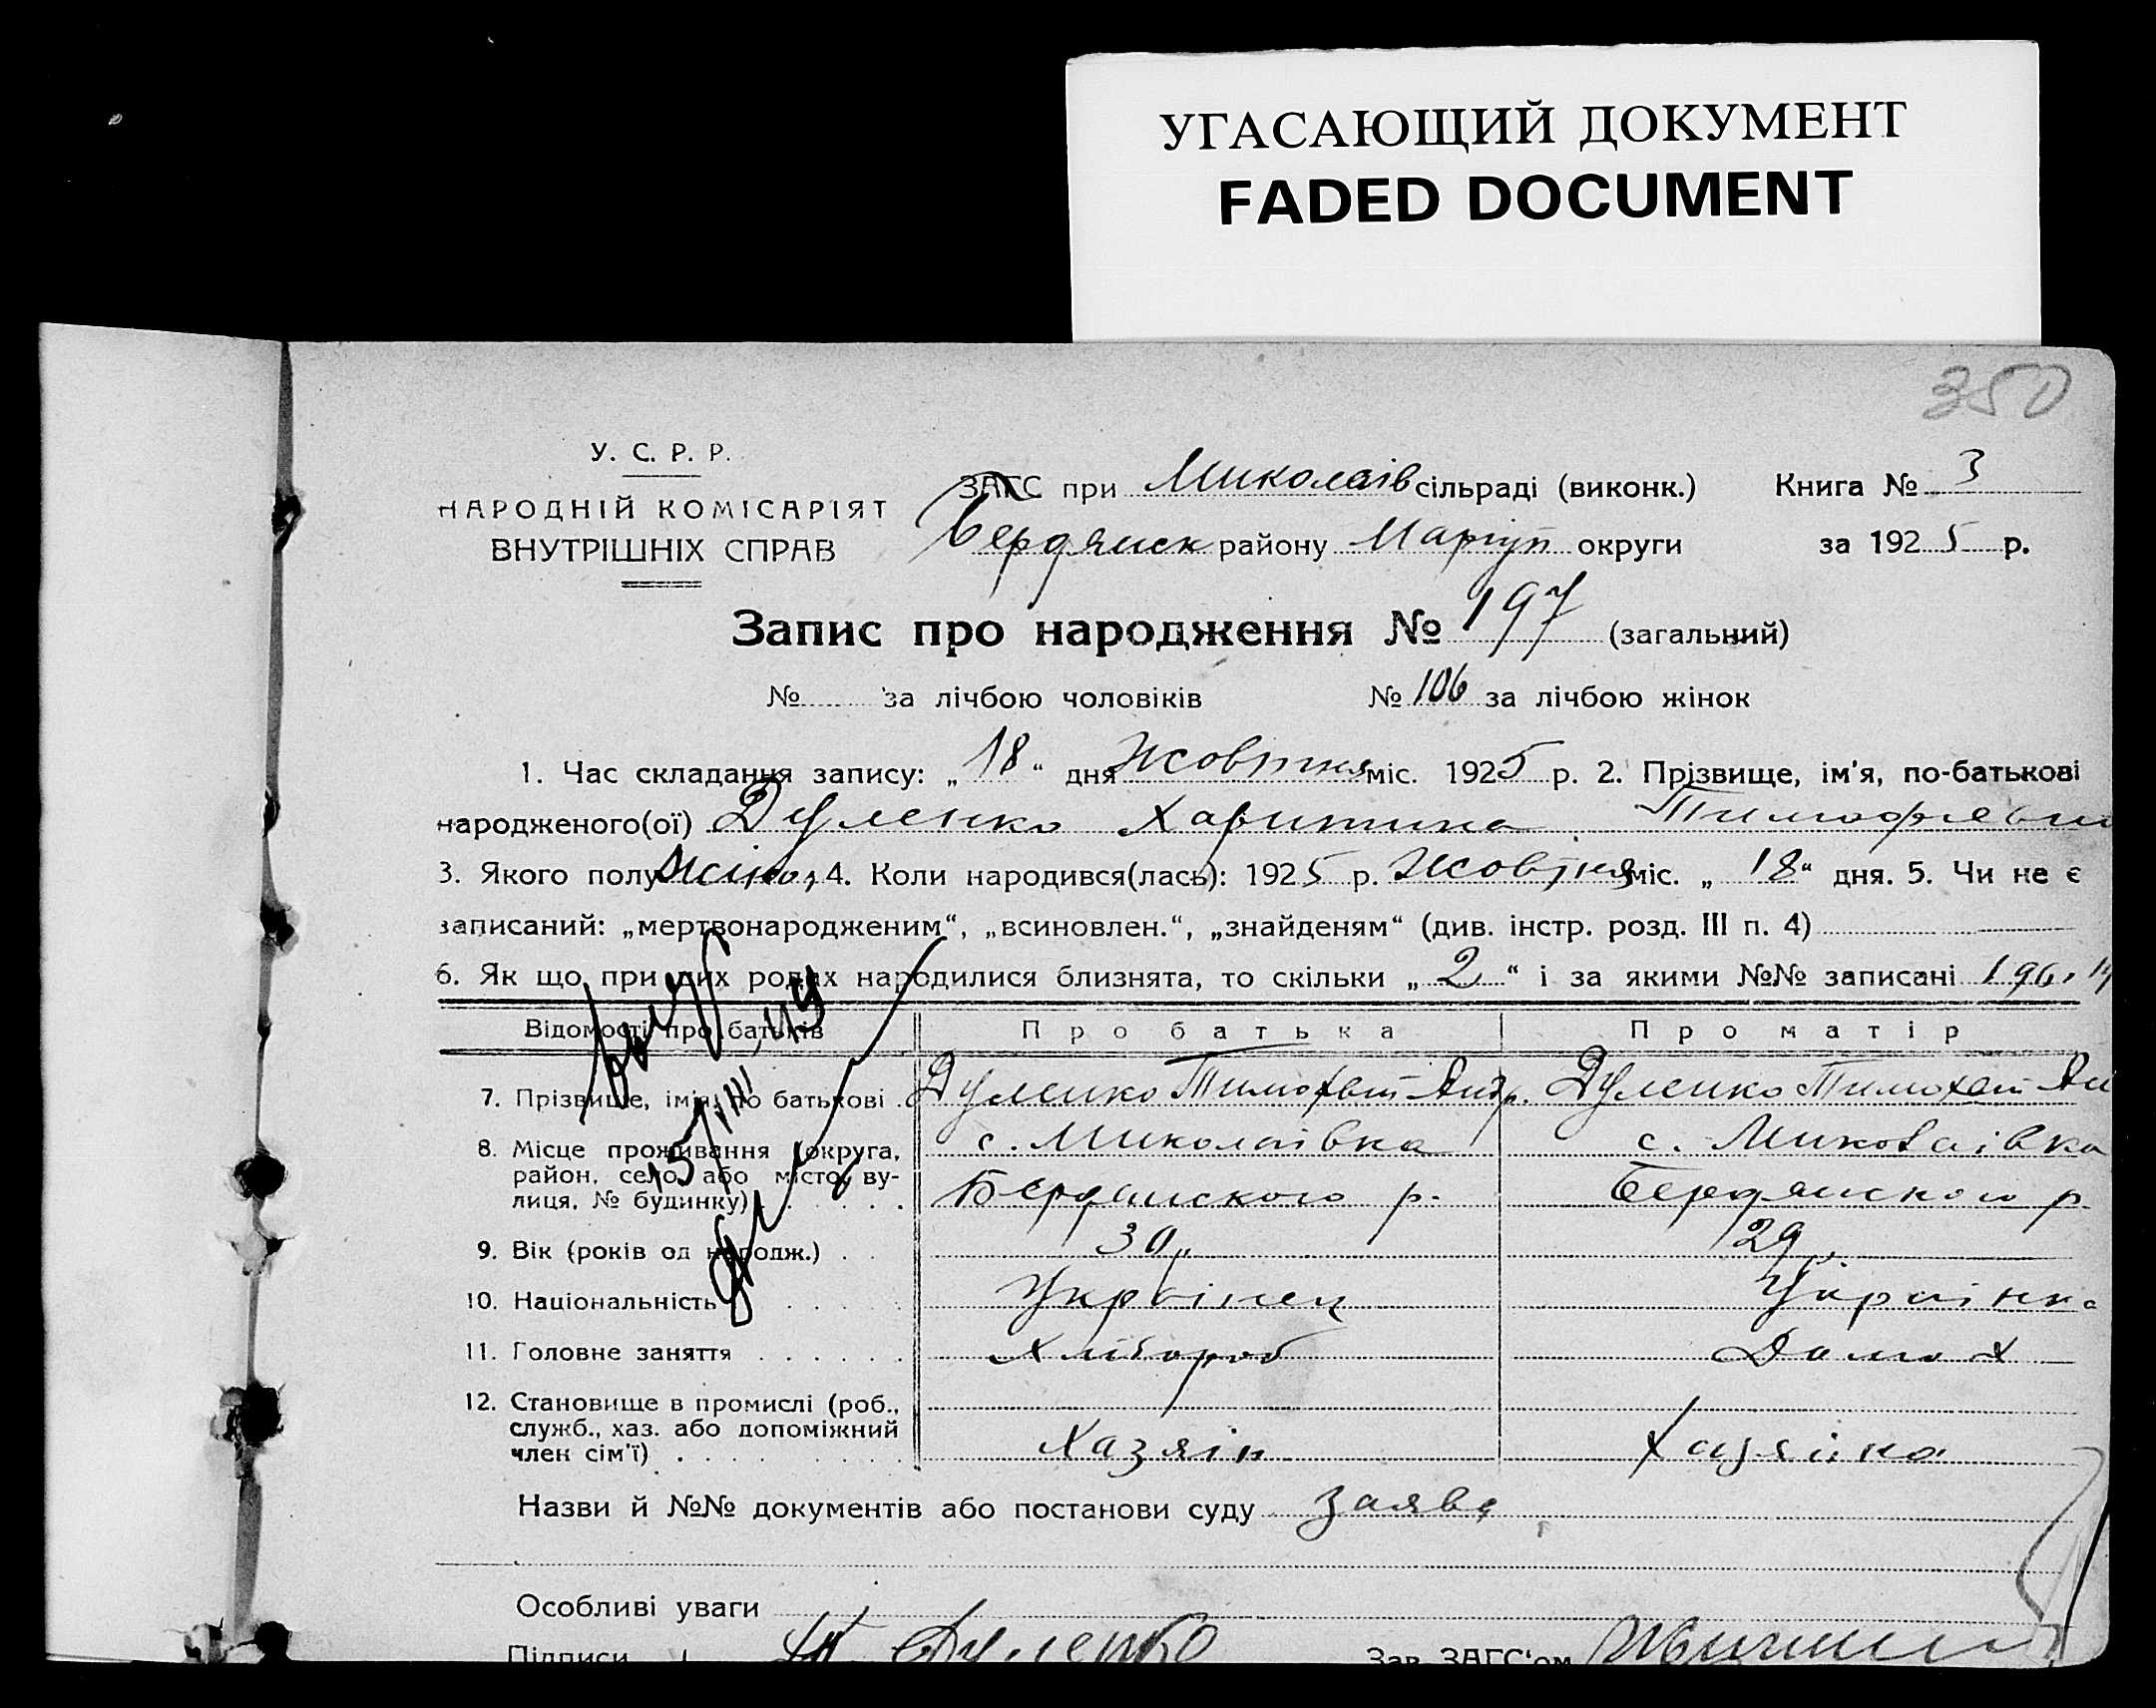 УГАСАЮЩИЙ ДОКУМЕНТ
FADED DOCUMENT
350
У. С. Р. Р.
НАРОДНІЙ КОМІСАРІЯТ
ВНУТРІШНІХ СПРАВ
ЗАГС при Миколаїв сільраді (виконк.) Книга № 3
Бердянск району Маріуп округи за 1925 р.
Запис про народження № 197 (загальний)
№ за лічбою чоловіків № 106 за лічбою жінок
1. Час складання запису: „18“ дня Жовтня міс. 1925 р. 2. Прізвище, ім'я, по-батькові
народженого(ої) Дуленко Харитина
3. Якого полу 4. Коли народився(лась): 1925 р. Жовтня міс. „18“ дня. 5. Чи не є
записаний: „мертвонародженим“, „всиновлен.“, „знайденям“ (див. інстр. розд. III п. 4)
6. Як що при цих родах народилися близнята, то скільки „2“ і за якими №№ записані 196,
Відомості про батьків Про батька Про матір
7. Прізвище, імія, по батькові Дуленко Тимохвий Андр. Дуленко
8. Місце проживання (округа, район, село або місто, вулиця, № будинку) с. Миколаівка с. Миколаівка
Бердянского р. Бердянского р.
9. Вік (років од народж.) 30 29
10. Національність Українец Українка
11. Головне заняття Хлібороб Домох
12. Становище в промислі (роб., служб., хаз. або допоміжний член сім'ї) Хазяін Хазяйка
Назви й №№ документів або постанови суду Заява
Особливі уваги
Підписи Зав. ЗАГС'ом